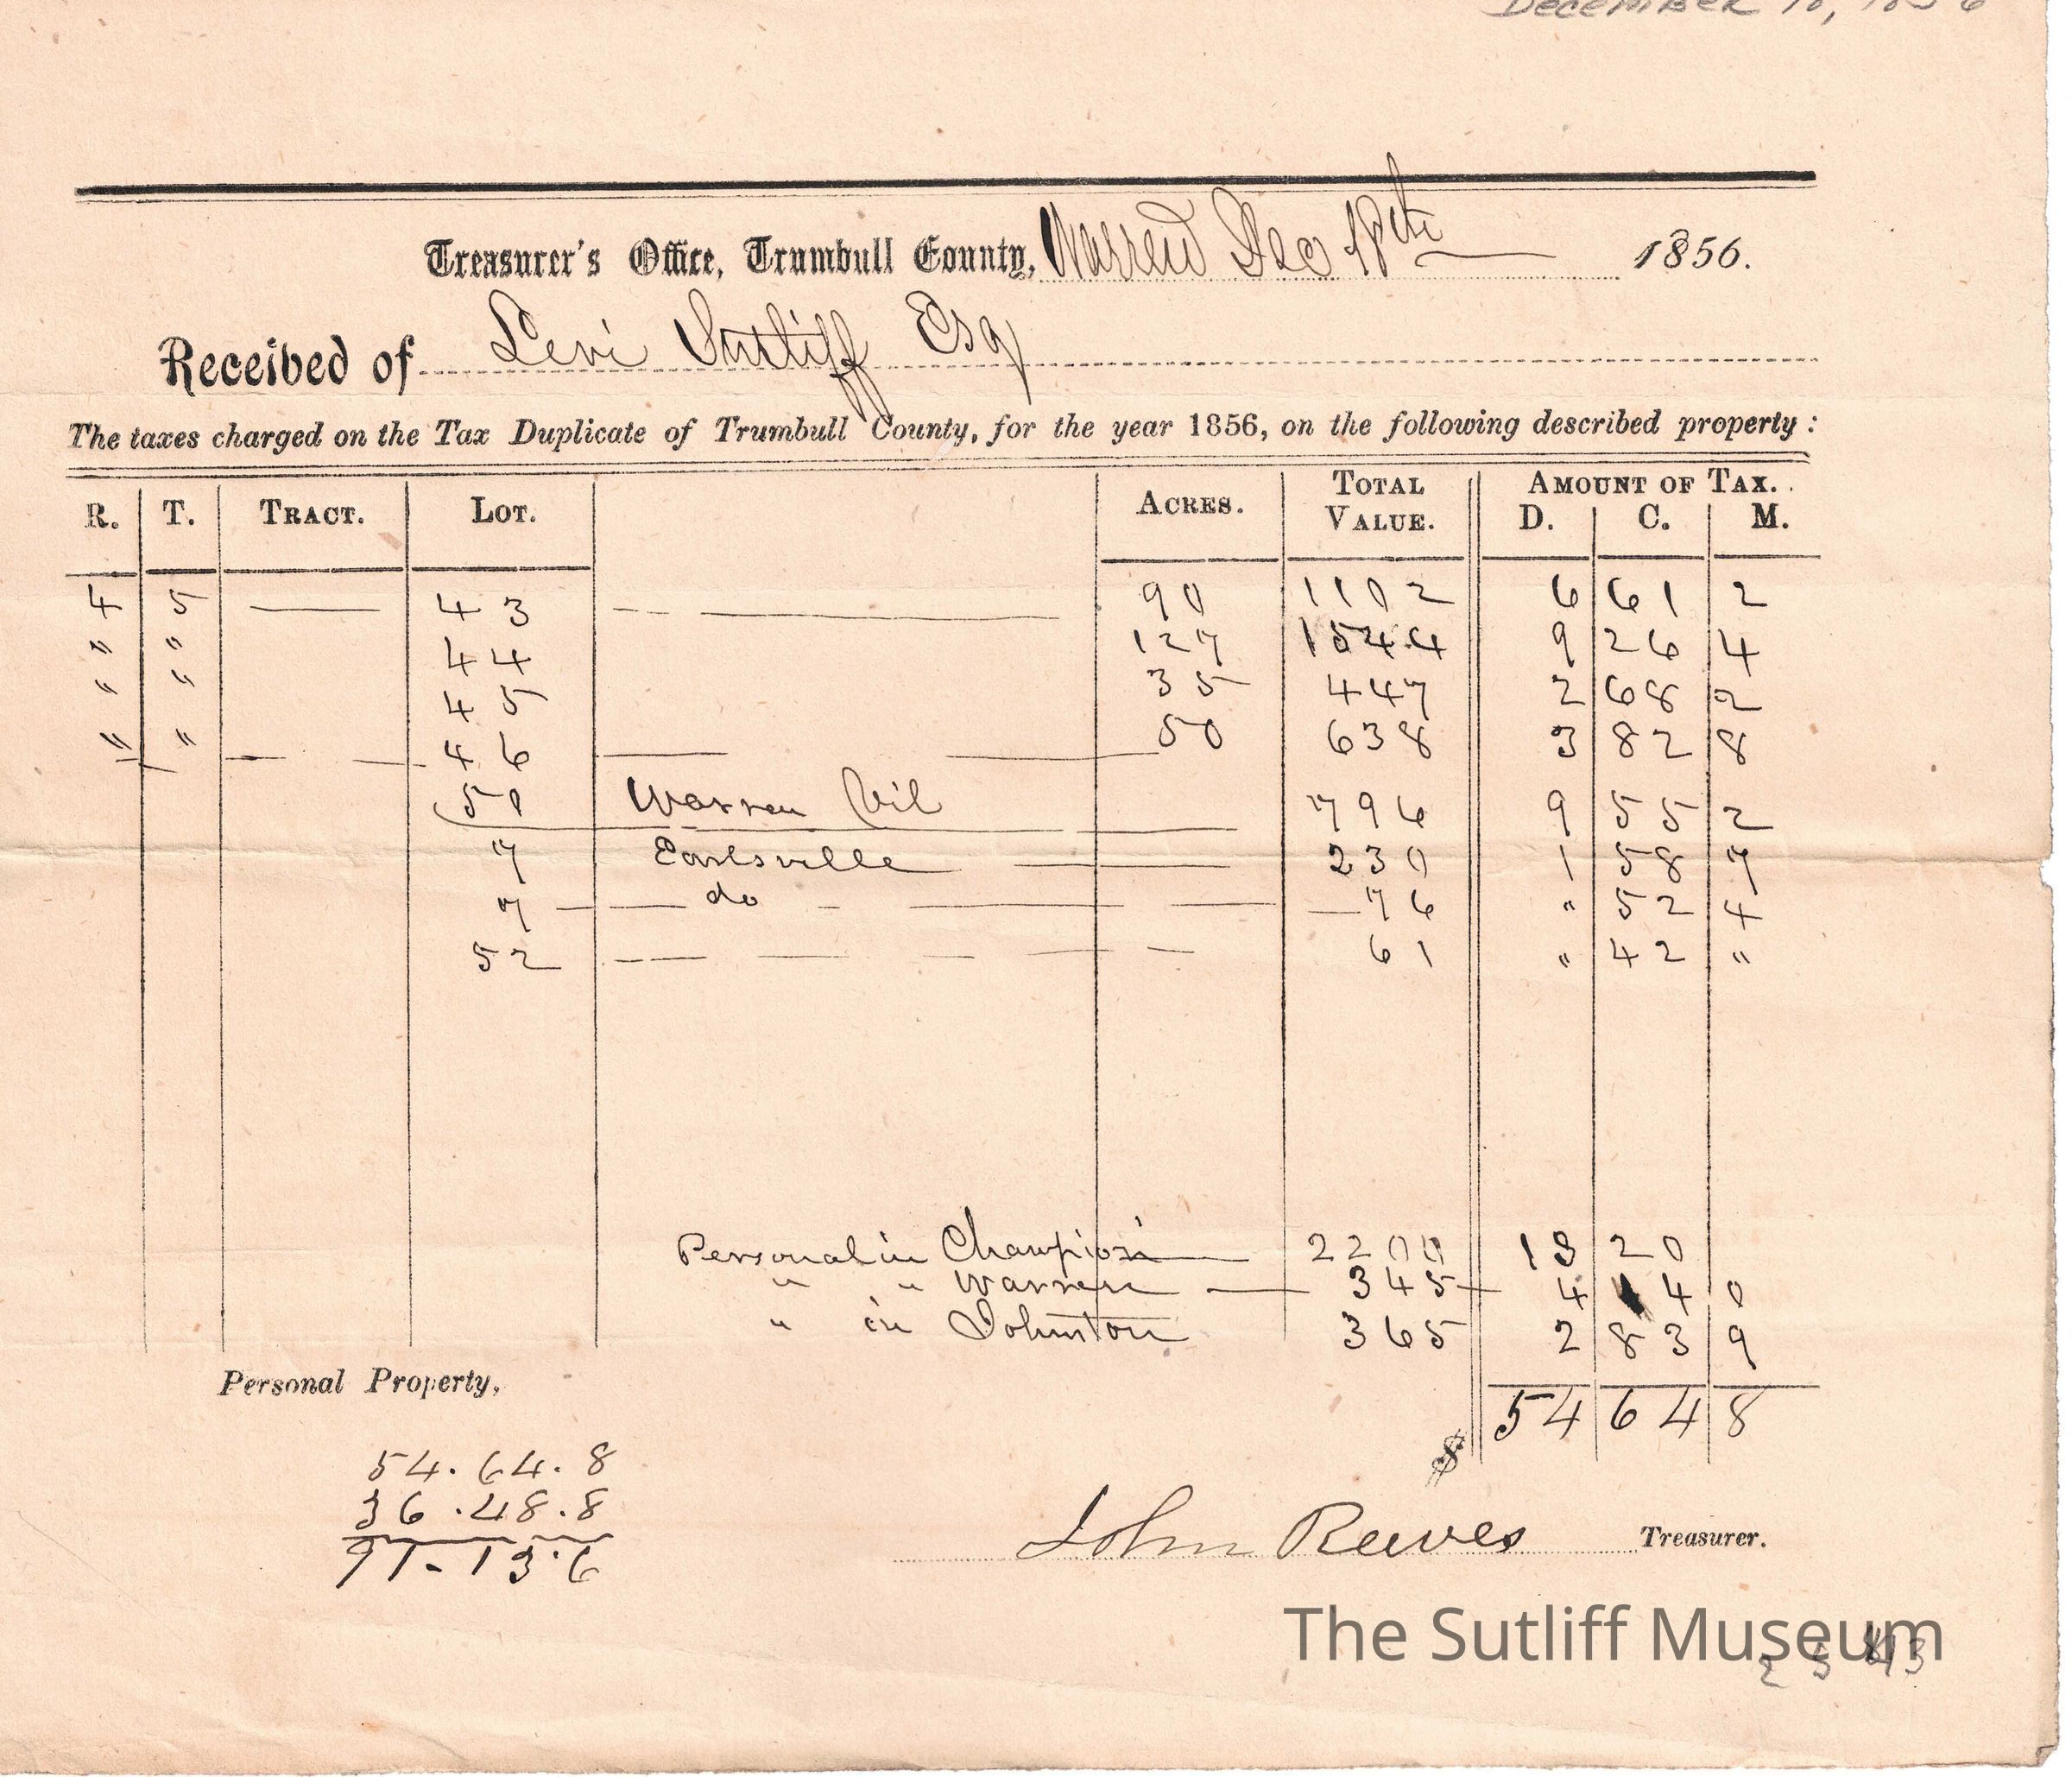 December 18, 1856
Treasurer's Office, Trumbull County, Warren Dec 18th 1856.
Received of Levi Sutliff Esq
The taxes charged on the Tax Duplicate of Trumbull County, for the year 1856, on the following described property :
R. T. TRACT. LOT. ACRES. TOTAL VALUE. AMOUNT OF TAX. D. C. M.
4 5 — 43 — 90 1102 6 61 2
" " 44 127 1544 9 26 4
" " 45 35 447 2 68 2
" " 46 50 638 3 82 8
50 Warren Vil 796 9 55 2
7 Earlsville 230 1 58 7
7 do 76 " 52 4
52 61 " 42 "
Personal in Champion 2200 13 20
" " Warren 345 4 14 0
" in Johnston 365 2 83 9
Personal Property,
$ 54 64 8
54.64.8
36.48.8
91.13.6
John Reeves Treasurer.
The Sutliff Museum